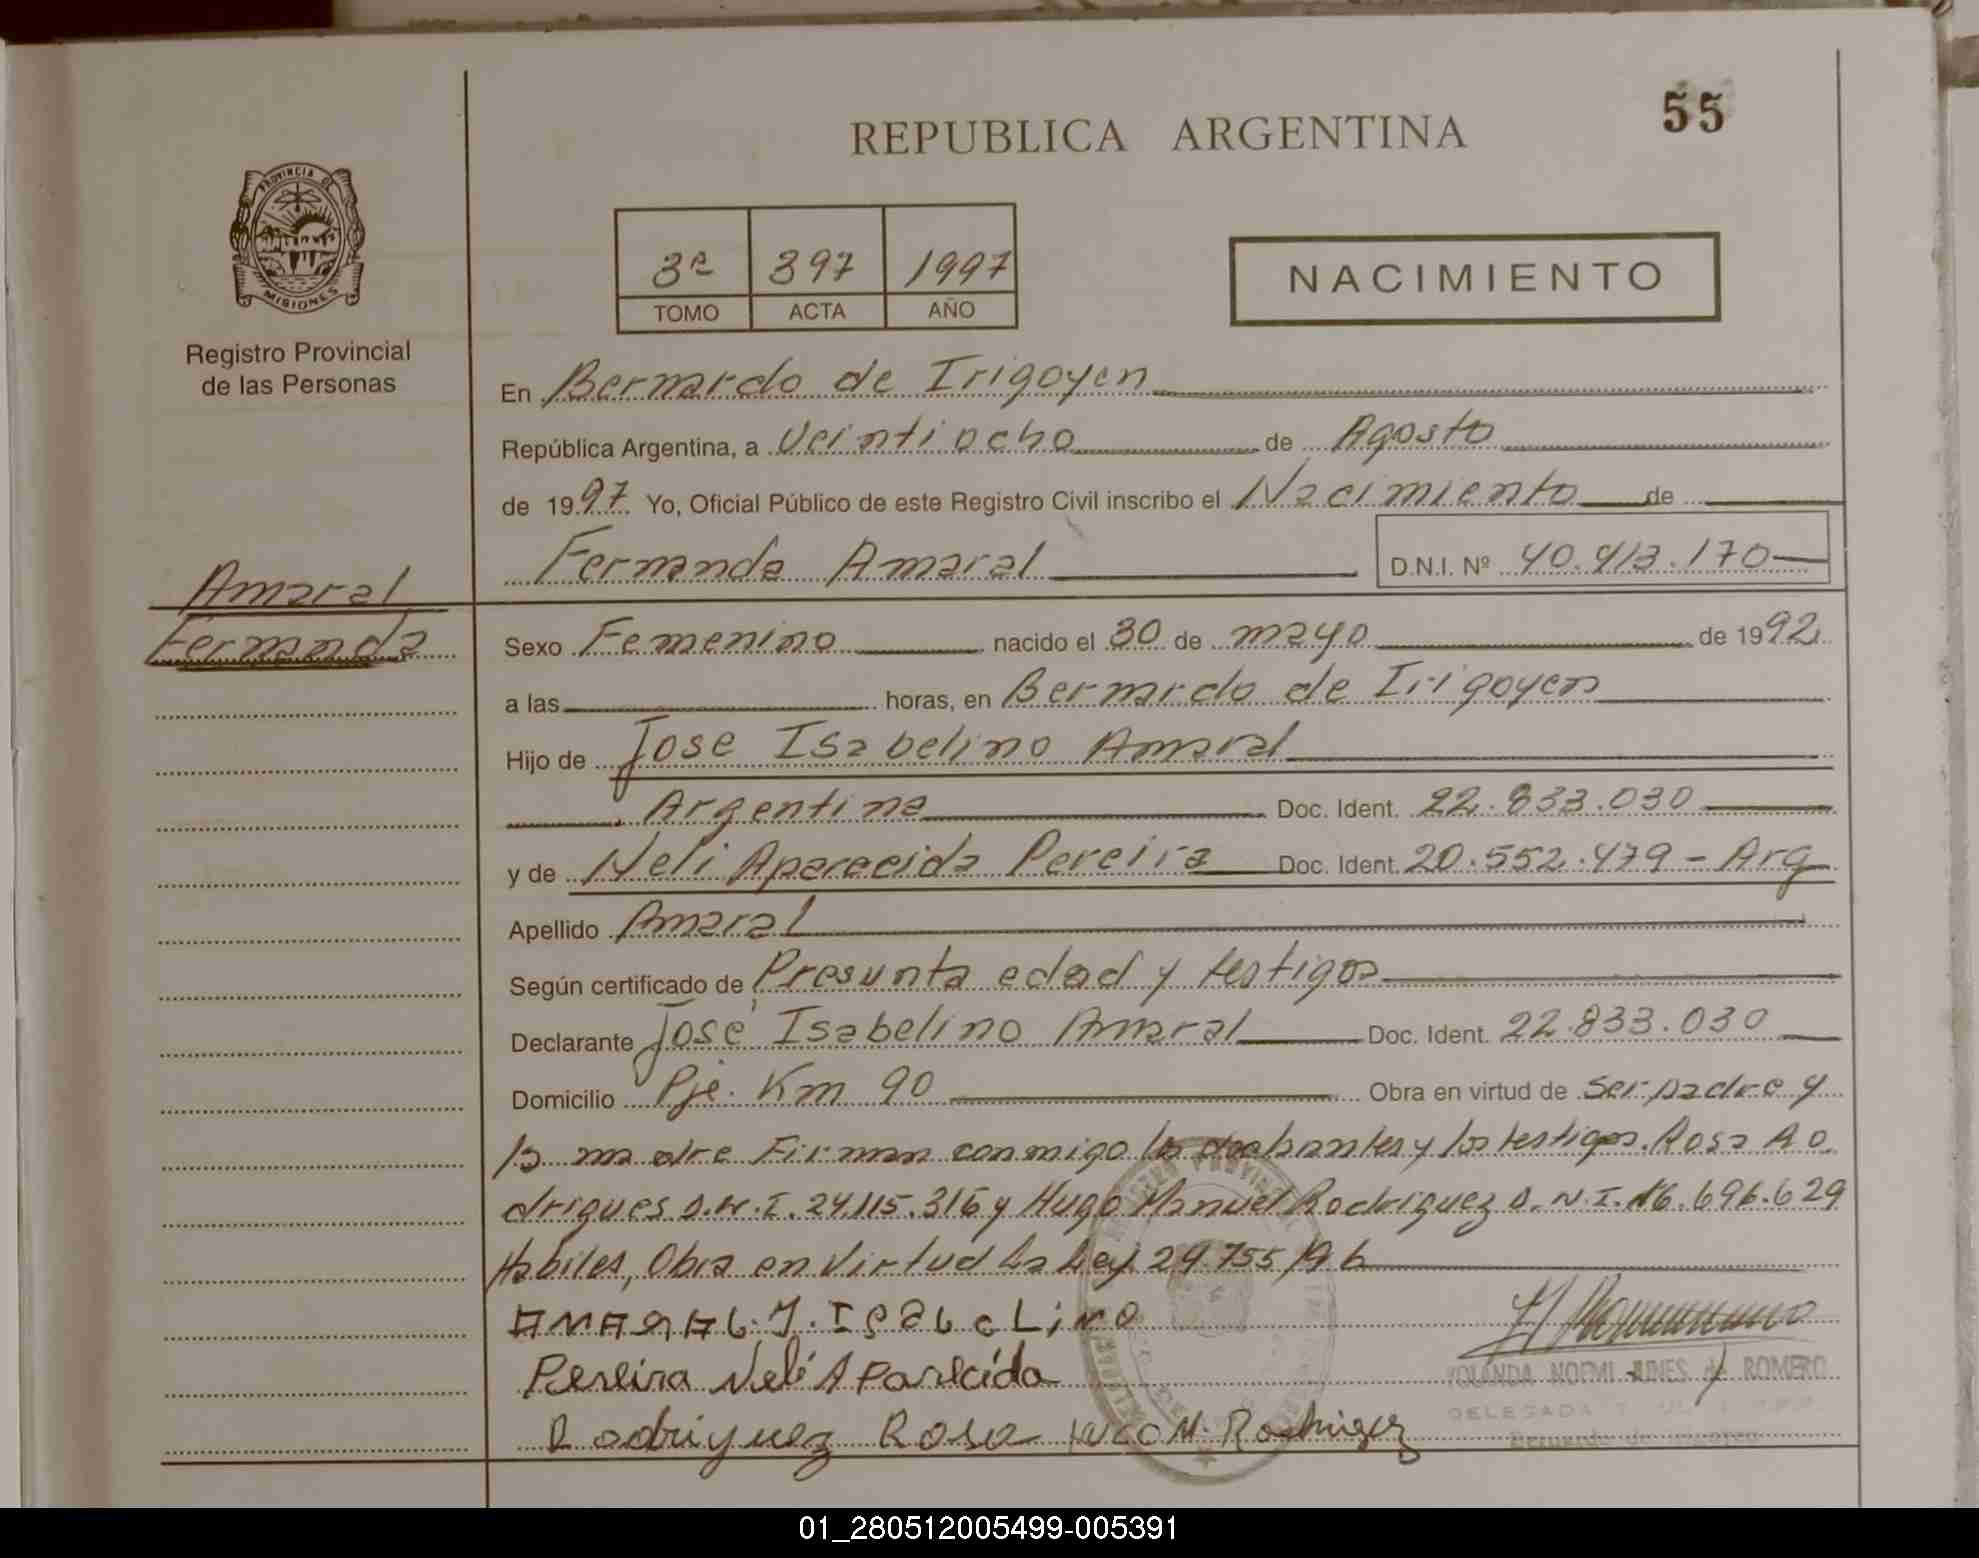 55
REPUBLICA ARGENTINA
PROVINCIA DE
MISIONES
Registro Provincial
de las Personas
3º 397 1997
TOMO ACTA AÑO
NACIMIENTO
En Bernardo de Irigoyen
República Argentina, a Veintiocho de Agosto
de 1997 Yo, Oficial Público de este Registro Civil inscribo el Nacimiento de
Fernanda Amaral D.N.I. Nº 40.413.170
Amaral
Fernanda
Sexo Femenino nacido el 30 de mayo de 1992
a las horas, en Bernardo de Irigoyen
Hijo de Jose Isabelino Amaral
Argentina Doc. Ident. 22.833.030
y de Neli Aparecida Pereira Doc. Ident. 20.552.479 - Arg
Apellido Amaral
Según certificado de Presunta edad y testigos
Declarante José Isabelino Amaral Doc. Ident. 22.833.030
Domicilio Pje. Km 90 Obra en virtud de Ser padre y
la madre Firman conmigo los y los testigos. Rosa Ro
drigues D.N.I. 24.115.316 y Hugo Manuel Rodriguez D.N.I. 16.696.629
Habiles, Obra en Virtud La Ley 24.755/96
AMARAL. J. ISabeLiNo
Pereira Neli Aparecida
Rodriguez Rosa HUGO M. Rodriguez
YOLANDA NOEMI de ROMERO
DELEGADA
Bernardo de Irigoyen
01_280512005499-005391